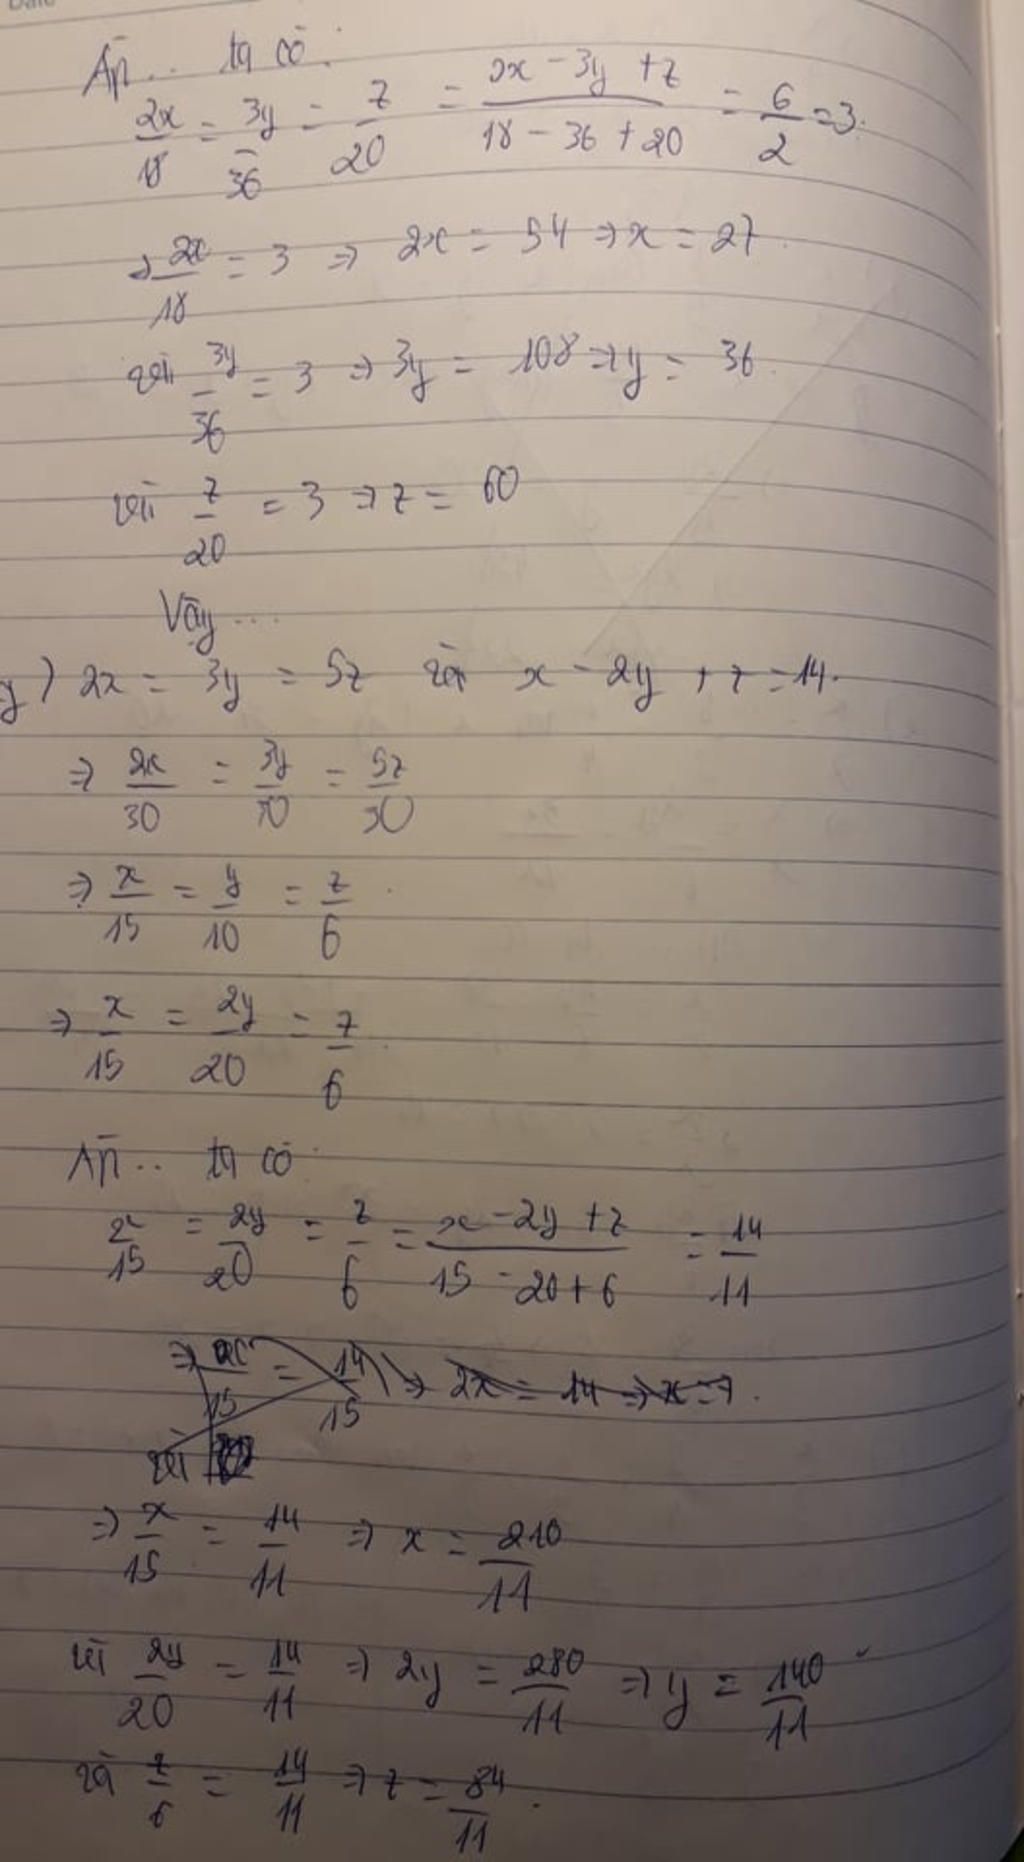 Áp.. ta có:
2x/18 = 3y/36 = z/20 = (2x - 3y + z)/(18 - 36 + 20) = 6/2 = 3.
⇒ 2x/18 = 3 ⇒ 2x = 54 ⇒ x = 27.
với 3y/36 = 3 ⇒ 3y = 108 ⇒ y = 36.
với z/20 = 3 ⇒ z = 60
Vậy ...
y) 2x = 3y = 5z và x - 2y + z = 14.
⇒ 2x/30 = 3y/30 = 5z/30
⇒ x/15 = y/10 = z/6.
⇒ x/15 = 2y/20 = z/6.
Áp.. ta có:
x/15 = 2y/20 = z/6 = (x - 2y + z)/(15 - 20 + 6) = 14/11
⇒ x/15 = 14/15 ⇒ 2x = 14 ⇒ x = 7.
với
⇒ x/15 = 14/11 ⇒ x = 210/11
với 2y/20 = 14/11 ⇒ 2y = 280/11 ⇒ y = 140/11
và z/6 = 14/11 ⇒ z = 84/11.